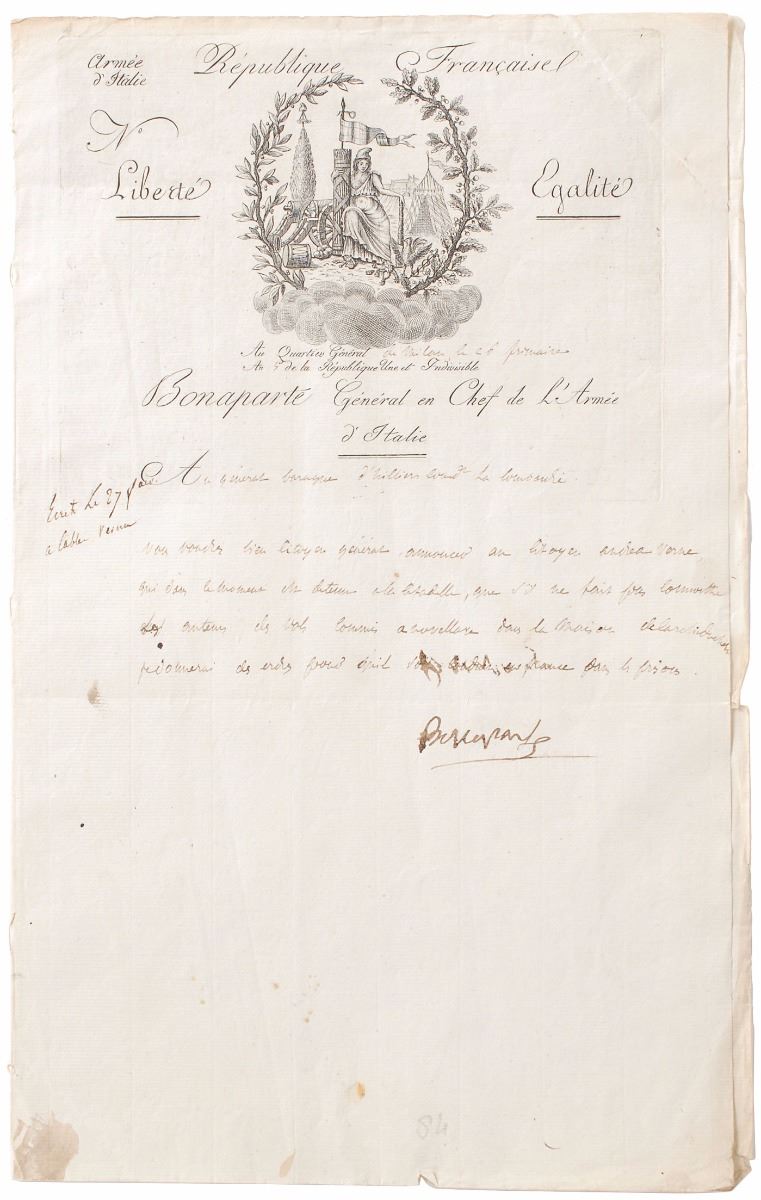 Armée
d'Italie
République Française
N.°
Liberté
Egalité
Au Quartier Général de Milan, le 26 frimaire
An 5.e de la République Une et Indivisible
Bonaparte Général en Chef de L'Armée
d'Italie
Au général baraguai d'hilliers Comdt La Lombardie.
Ecrit Le 27
a
vous voudrez bien Citoyen général annoncer au Citoyen andrea
qui dans le moment est detenu a la Citadelle, que s'il ne fait pas connoitre
les auteurs des vols commis a novellara dans la Maison
je donnerai des ordres pour qu'il en france dans les prisons.
Bonaparte
84